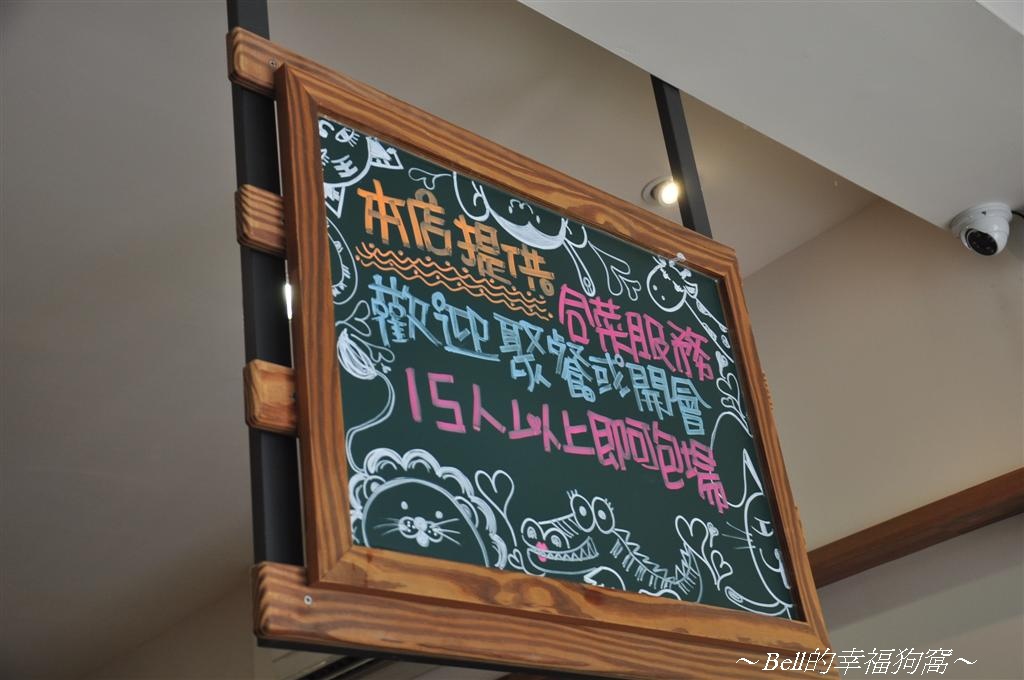 本店提供
合菜服務
歡迎聚餐或開會
15人以上即可包場
～Bell的幸福狗窩～